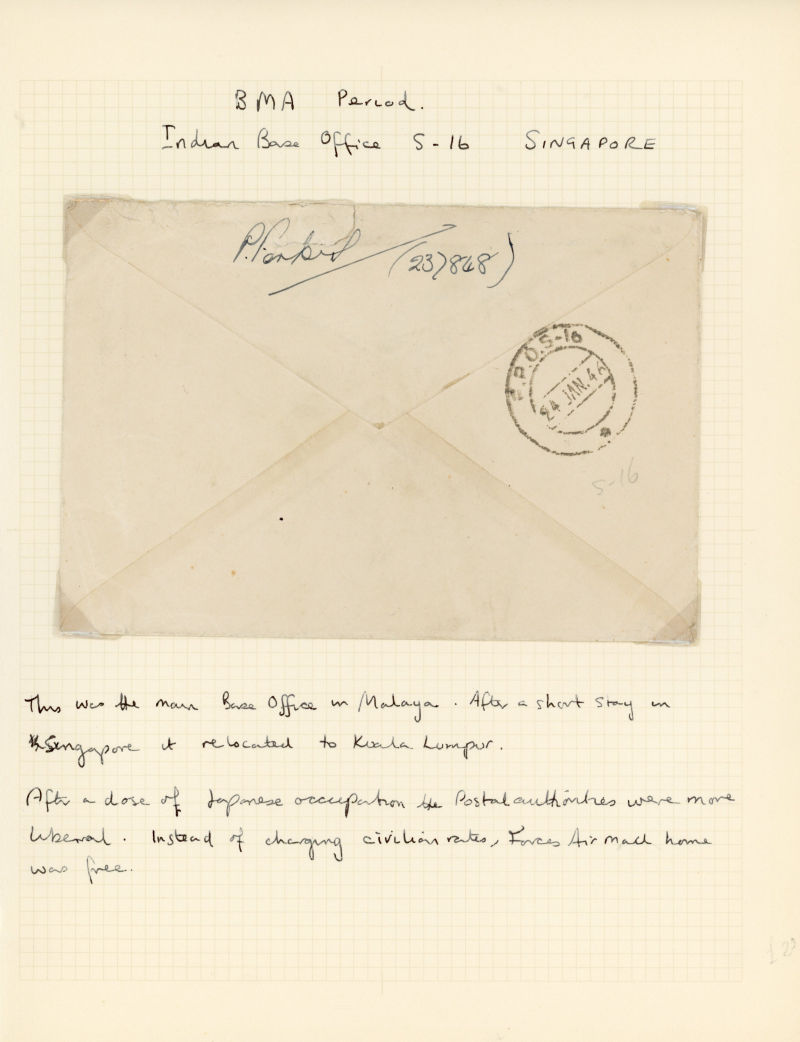 BMA Period.
Indian Base Office S-16 SINGAPORE
(237848)
F.P.O.S-16
24 JAN.46
S-16
This was the main Base Office in Malaya. After a short stay in
Singapore it relocated to Kuala Lumpur.
After a dose of Japanese occupation the Postal authorities were more
liberal. Instead of charging civilian rates, Forces Air mail home
was free.